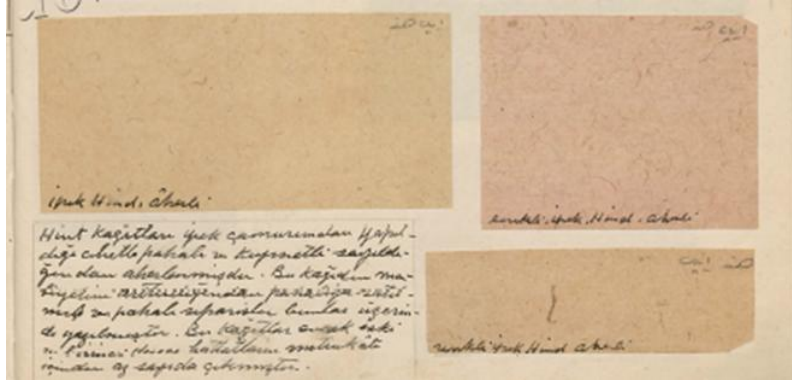 ipek Hind. âherli
renkli. ipek. Hind. âherli
Hint Kağıtları ipek çamurundan yapıl-
dığı cihetle pahalı ve kıymetli sayıldı-
ğından aherlenmişdir. Bu kağıdın
arttırdığından pahalıya satıl-
mış ve pahalı siparişler bunlar üzerin-
de yapılmıştır. Bu Kağıtlar ancak eski
ve birinci hattatların metrukâtı
içinden az sayıda çıkmıştır.
renkli ipek Hind aherli